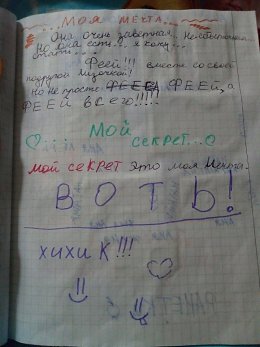 ...Моя мечта...
Она очень заветная. Необычная.
Но она есть... я хочу...
стать...
Феей!!! вместе со своей
подругой
Но не просто ФЕЕЙ, а
ФЕЕЙ всего!!!!!
Мой
секрет...
мой секрет это моя мечта.
ВОТЬ!
хихик!!!